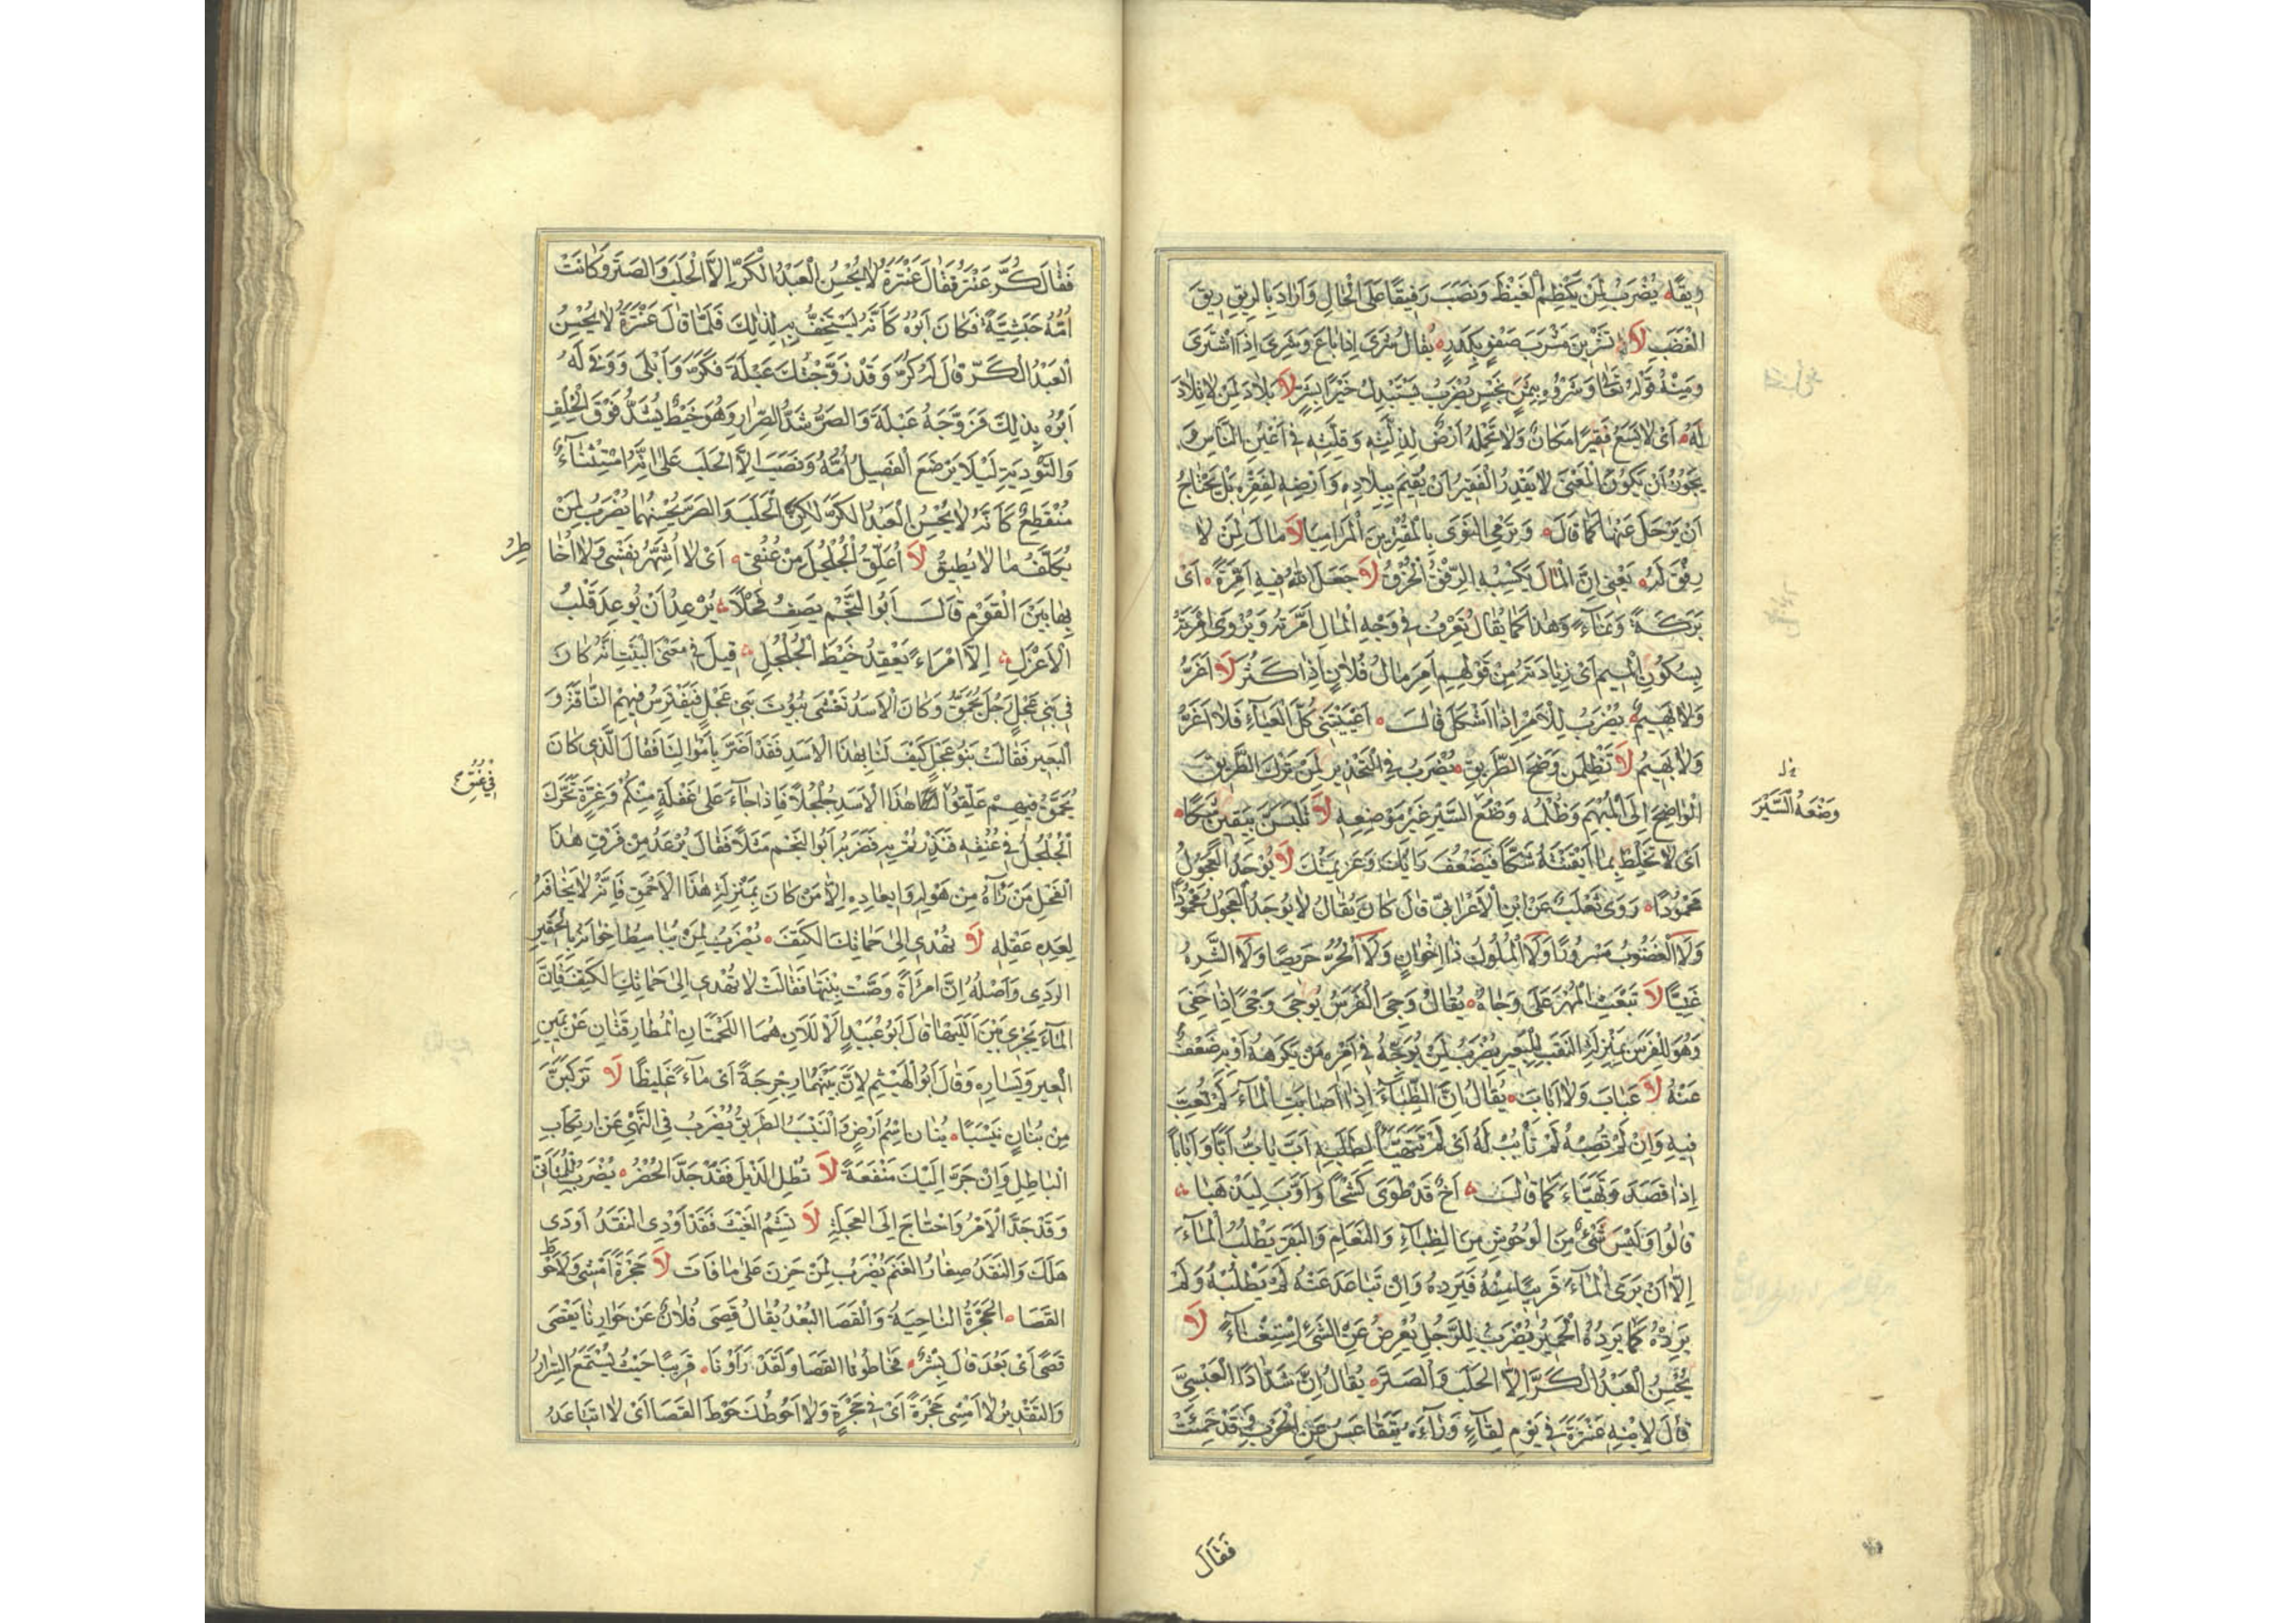 رِيقَهُ يُضْرَبُ لِمَنْ يَكْظِمُ الْغَيْظَ وَنَصَبَ رَفِيقًا عَلَى الْحَالِ وَاَرَادَ بِالرِّيقِ رِيقَ
الْغَضَبِ لَا تَشْرِيَنَّ مَشْرَبَ صَفْوٍ بِكَدَرٍ يُقَالُ شَرَى اِذَا بَاعَ وَشَرَى اِذَا اشْتَرَى
وَمِنْهُ قَوْلُهُ تَعَالَى وَشَرَوْهُ بِثَمَنٍ بَخْسٍ يُضْرَبُ يَسْتَبْدِلُ خَيْرًا بِشَرٍّ لَا بِلَادَ لِمَنْ لَا تِلَادَ
لَهُ اَىْ لَا يَسَعُ فَقِيرًا مَكَانٌ وَلَا تَحْمِلُهُ اَرْضٌ لِذِلَّتِهِ وَقِلَّتِهِ فِى اَعْيُنِ النَّاسِ وَ
يَجُوزُ اَنْ يَكُونَ الْمَعْنَى لَا يَقْدِرُ الْفَقِيرُ اَنْ يُقِيمَ بِبِلَادِهِ وَاَرْضِهِ لِفَقْرِهِ بَلْ يَحْتَاجُ
اَنْ يَرْحَلَ عَنْهَا كَمَا قَالَ وَتَرْمِى النَّوَى بِالْمُقْتِرِينَ الْمَرَامِيَا لَا مَالَ لِمَنْ لَا
رِفْقَ لَهُ يَعْنِى اِنَّ الْمَالَ يَكْسِبُهُ الرِّفْقُ لَا الْخُرْقُ لَا جَعَلَ اللهُ فِيهِ اَمَرَةً اَىْ
بَرَكَةً وَنَمَاءً وَهٰذَا كَمَا يُقَالُ تَعْرِفُ فِى وَجْهِ الْمَالِ اَمَرَتَهُ وَيُرْوَى اَمْرَتَهُ
بِسُكُونِ الْمِيمِ اَىْ زِيَادَتَهُ مِنْ قَوْلِهِمْ اَمِرَ مَالُ فُلَانٍ اِذَا كَثُرَ لَا اَغَرُّ
وَلَا بَهِيمٌ يُضْرَبُ لِلْاَمْرِ اِذَا اَشْكَلَ قَالَ اَعْيَيْتَنِى كُلَّ الْعَيَاءِ فَلَا اَغَرُّ
وَلَا بَهِيمُ لَا تَظْلِمَنَّ وَضَحَ الطَّرِيقِ يُضْرَبُ فِى التَّحْذِيرِ لِمَنْ تَرَكَ الطَّرِيقَ
الْوَاضِحَ اِلَى الْمُبْهَمِ وَظُلْمُهُ وَضْعُ السَّيْرِ غَيْرَ مَوْضِعِهِ لَا تَلْبِسَنَّ بِيَقِينٍ شَكًّا
خ ل
وَضْعُهُ السَّيْرَ
اَىْ لَا تَخْلِطْ بِمَا اَيْقَنْتَهُ شَكًّا فَيَضْعُفَ رَأْيُكَ وَعَزِيمَتُكَ لَا يُوجَدُ الْعَجُولُ
مَحْمُودًا رَوَى ثَعْلَبٌ عَنِ ابْنِ الْاَعْرَابِىِّ قَالَ كَانَ يُقَالُ لَا يُوجَدُ الْعَجُولُ مَحْمُودًا
وَلَا الْغَضُوبُ مَسْرُورًا وَلَا الْمَلُولُ ذَا اِخْوَانٍ وَلَا الْحُرُّ حَرِيصًا وَلَا الشَّرِهُ
غَنِيًّا لَا تَبْعَثِ الْمُهْرَ عَلَى وَجَاهُ يُقَالُ وَجِىَ الْفَرَسُ يَوْجَى وَجًى اِذَا حَفِىَ
وَهُوَ لِلْفَرَسِ بِمَنْزِلَةِ النَّقَبِ لِلْبَعِيرِ يُضْرَبُ لِمَنْ يُوَجِّهُ فِى اَمْرِهِ مَنْ يَكْرَهُهُ اَوْ بِهِ ضَعْفٌ
عَنْهُ لَا عَبَابَ وَلَا اَبَابَ يُقَالُ اِنَّ الظِّبَاءَ اِذَا اَصَابَتِ الْمَاءَ لَمْ تَعُبَّ
فِيهِ وَاِنْ لَمْ تُصِبْهُ لَمْ تَأْبُبْ لَهُ اَىْ لَمْ تَتَهَيَّأْ لِطَلَبِهِ اَبَّ يَاَبُّ اَبًّا وَاَبَابًا
اِذَا قَصَدَ وَتَهَيَّاءَ كَمَا قَالَ اَخٌ قَدْ طَوَى كَشْحًا وَاَبَّ لِيَذْهَبَا
قَالُوا وَلَيْسَ شَىْءٌ مِنَ الْوُحُوشِ مِنَ الظِّبَاءِ وَالنَّعَامِ وَالْبَقَرِ يَطْلُبُ الْمَاءَ
اِلَّا اَنْ يَرَى الْمَاءَ قَرِيبًا مِنْهُ فَيَرِدَهُ وَاِنْ تَبَاعَدَ عَنْهُ لَمْ يَطْلُبْهُ وَلَمْ
يَرِدْهُ كَمَا يَرِدُهُ الْحَمِيرُ يُضْرَبُ لِلرَّجُلِ يُعْرِضُ عَنِ الشَّىْءِ اِسْتِغْنَاءً لَا
يُحْسِنُ الْعَبْدُ الْكَرَّ اِلَّا الْحَلَبَ وَالصَّرَّ يُقَالُ اِنَّ شَدَّادًا الْعَبْسِىَّ
قَالَ لِابْنِهِ عَنْتَرَةَ فِى يَوْمِ لِقَاءٍ وَرَآهُ يَتَقَاعَسُ عَنِ الْحَرْبِ وَقَدْ حَمِيَتْ
فَقَالَ
فَقَالَ كُرَّ عَنْتَرَ فَقَالَ عَنْتَرَةُ لَا يُحْسِنُ الْعَبْدُ الْكَرَّ اِلَّا الْحَلَبَ وَالصَّرَّ وَكَانَتْ
اُمُّهُ حَبَشِيَّةً فَكَانَ اَبُوهُ كَاَنَّهُ يَسْتَخِفُّ بِهِ لِذٰلِكَ فَلَمَّا قَالَ عَنْتَرَةُ لَا يُحْسِنُ
الْعَبْدُ الْكَرَّ قَالَ لَهُ كُرَّ وَقَدْ زَوَّجْتُكَ عَبْلَةَ فَكَرَّ وَاَبْلَى وَوَفَى لَهُ
اَبُوهُ بِذٰلِكَ فَزَوَّجَهُ عَبْلَةَ وَالصَّرُّ شَدُّ الصِّرَارِ وَهُوَ خَيْطٌ يُشَدُّ فَوْقَ الْخِلْفِ
وَالتَّوْدِيَةِ لِئَلَّا يَرْضَعَ الْفَصِيلُ اُمَّهُ وَنَصَبَ اِلَّا الْحَلَبَ عَلَى اَنَّهُ اسْتِثْنَاءٌ
مُنْقَطِعٌ كَاَنَّهُ لَا يُحْسِنُ الْعَبْدُ الْكَرَّ لٰكِنَّ الْحَلَبَ وَالصَّرَّ يُحْسِنُهُمَا يُضْرَبُ لِمَنْ
يُكَلَّفُ مَا لَا يُطِيقُ لَا اُعَلِّقُ الْجُلْجُلَ مِنْ عُنُقِى اَىْ لَا اُشَهِّرُ نَفْسِى وَلَا اُخَا
طِرُ
بِهَا بَيْنَ الْقَوْمِ قَالَ اَبُو النَّجْمِ يَصِفُ فَحْلًا يُرْعِدُ اَنْ يُوعِدَ قَلْبُ
الْاَعْزَلِ اِلَّا امْرَاءً يَعْقِدُ خَيْطَ الْجُلْجُلِ قِيلَ فِى مَعْنَى الْبَيْتِ اَنَّهُ كَانَ
فِى بَنِى عِجْلٍ رَجُلٌ يُحَمَّقُ وَكَانَ الْاَسَدُ تَغْشَى بُيُوتَ بَنِى عِجْلٍ فَيَفْتَرِسُ مِنْهُمُ النَّاقَةَ وَ
الْبَعِيرَ فَقَالَتْ بَنُو عِجْلٍ كَيْفَ لَنَا بِهٰذَا الْاَسَدِ فَقَدْ اَضَرَّ بِاَمْوَالِنَا فَقَالَ الَّذِى كَانَ
يُحَمَّقُ فِيهِمْ عَلِّقُوا هٰذَا الْاَسَدِ جُلْجُلًا فَاِذَا جَاءَ عَلَى غَفْلَةٍ مِنْكُمْ وَغِرَّةٍ تَحَرَّكَ
فِى عُنُقِ
الْجُلْجُلُ فِى عُنُقِهِ فَنَذِرْتُمْ بِهِ فَضَرَبَهُ اَبُو النَّجْمِ مَثَلًا فَقَالَ يُرْعَدُ مِنْ فَرَقِ هٰذَا
الْفَحْلِ مَنْ رَآهُ مِنْ هَوْلِهِ وَاِيعَادِهِ اِلَّا مَنْ كَانَ بِمَنْزِلَةِ هٰذَا الْاَحْمَقِ فَاِنَّهُ لَا يَخَافُهُ
لِعَدِمِ عَقْلِهِ لَا تُهْدِى اِلَى حَمَاتِكِ الْكَتِفَ يُضْرَبُ لِمَنْ يُبَاسِطُ اِخْوَانَهُ بِالْحَقِيرِ
الرَّدِى وَاَصْلُهُ اِنَّ امْرَأَةً وَصَّتْ بِنْتَهَا فَقَالَتْ لَا تُهْدِى اِلَى حَمَاتِكِ الْكَتِفَ فَاِنَّ
الْمَاءَ يَجْرِى بَيْنَ اَلَلَيْهَا قَالَ اَبُو عُبَيْدٍ اَلْاَلَلَانِ هُمَا اللَّحْمَتَانِ الْمُطَارَقَتَانِ عَنْ يَمِينِ
الْعَيْرِ وَيَسَارِهِ وَقَالَ اَبُو الْهَيْثَمِ لِاَنَّ بَيْنَهُمَا رِجْرِجَةً اَىْ مَاءً غَلِيظًا لَا تَرْكَبَنَّ
مِنْ بُنَانٍ نَيْسَبًا بُنَانٌ اِسْمُ اَرْضٍ وَالنَّيْسَبُ الطَّرِيقُ يُضْرَبُ فِى النَّهْىِ عَنِ ارْتِكَابِ
الْبَاطِلِ وَاِنْ جَرَّ اِلَيْكَ مَنْفَعَةً لَا تُطِلِ الذَّيْلَ فَقَدْ جَدَّ الْحُضْرُ يُضْرَبُ لِلْمُتَأَنِّى
وَقَدْ جَدَّ الْاَمْرُ وَاحْتَاجَ اِلَى الْعَجَلَةِ لَا تَشِمِ الْغَيْثَ فَقَدْ اَوْدَى النَّقَدُ اَوْدَى
هَلَكَ وَالنَّقَدُ صِغَارُ الْغَنَمِ يُضْرَبُ لِمَنْ حَزِنَ عَلَى مَا فَاتَ لَا حَجْرَةً اَمْشِى وَلَا حَوْطَ
الْقَصَا اَلْحَجْرَةُ النَّاحِيَةُ وَالْقَصَا الْبُعْدُ يُقَالُ قَصِىَ فُلَانٌ عَنْ جِوَارِنَا يَقْصَى
قَصًى اَىْ بَعُدَ قَالَ بِشْرٌ فَحَاطُونَا الْقَصَا وَلَقَدْ رَأَوْنَا قَرِيبًا حَيْثُ يُسْتَمَعُ السِّرَارُ
وَالتَّقْدِيرُ لَا اَمْشِى حَجْرَةً اَىْ فِى حَجْرَةٍ وَلَا اَحُوطُكَ حَوْطَ الْقَصَا اَىْ لَا اَتَبَاعَدُ